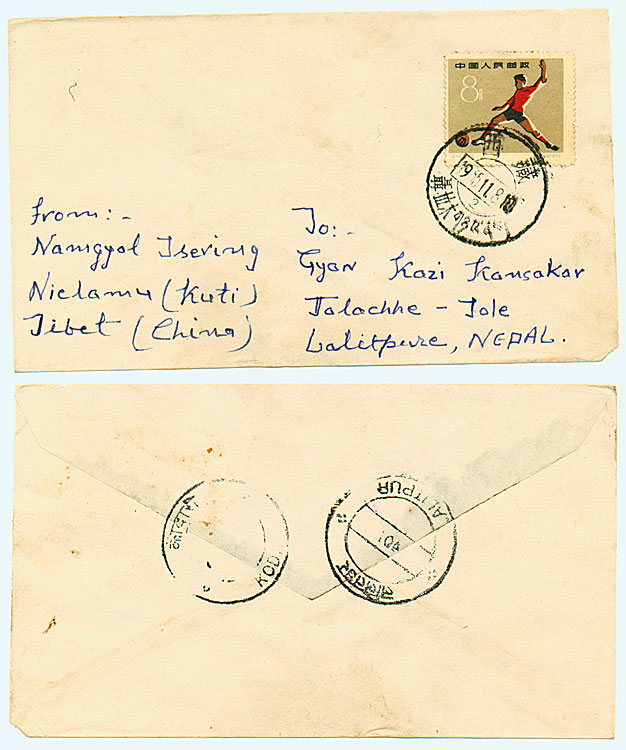 中国人民邮政
8
西藏
From:-
Namgyal Tsering
Nielamu (Kuti)
Tibet (China)
To:-
Gyan Kazi Kansakar
Talachhe - Tole
Lalitpure, NEPAL.
KOD
LALITPUR
ललितपुर